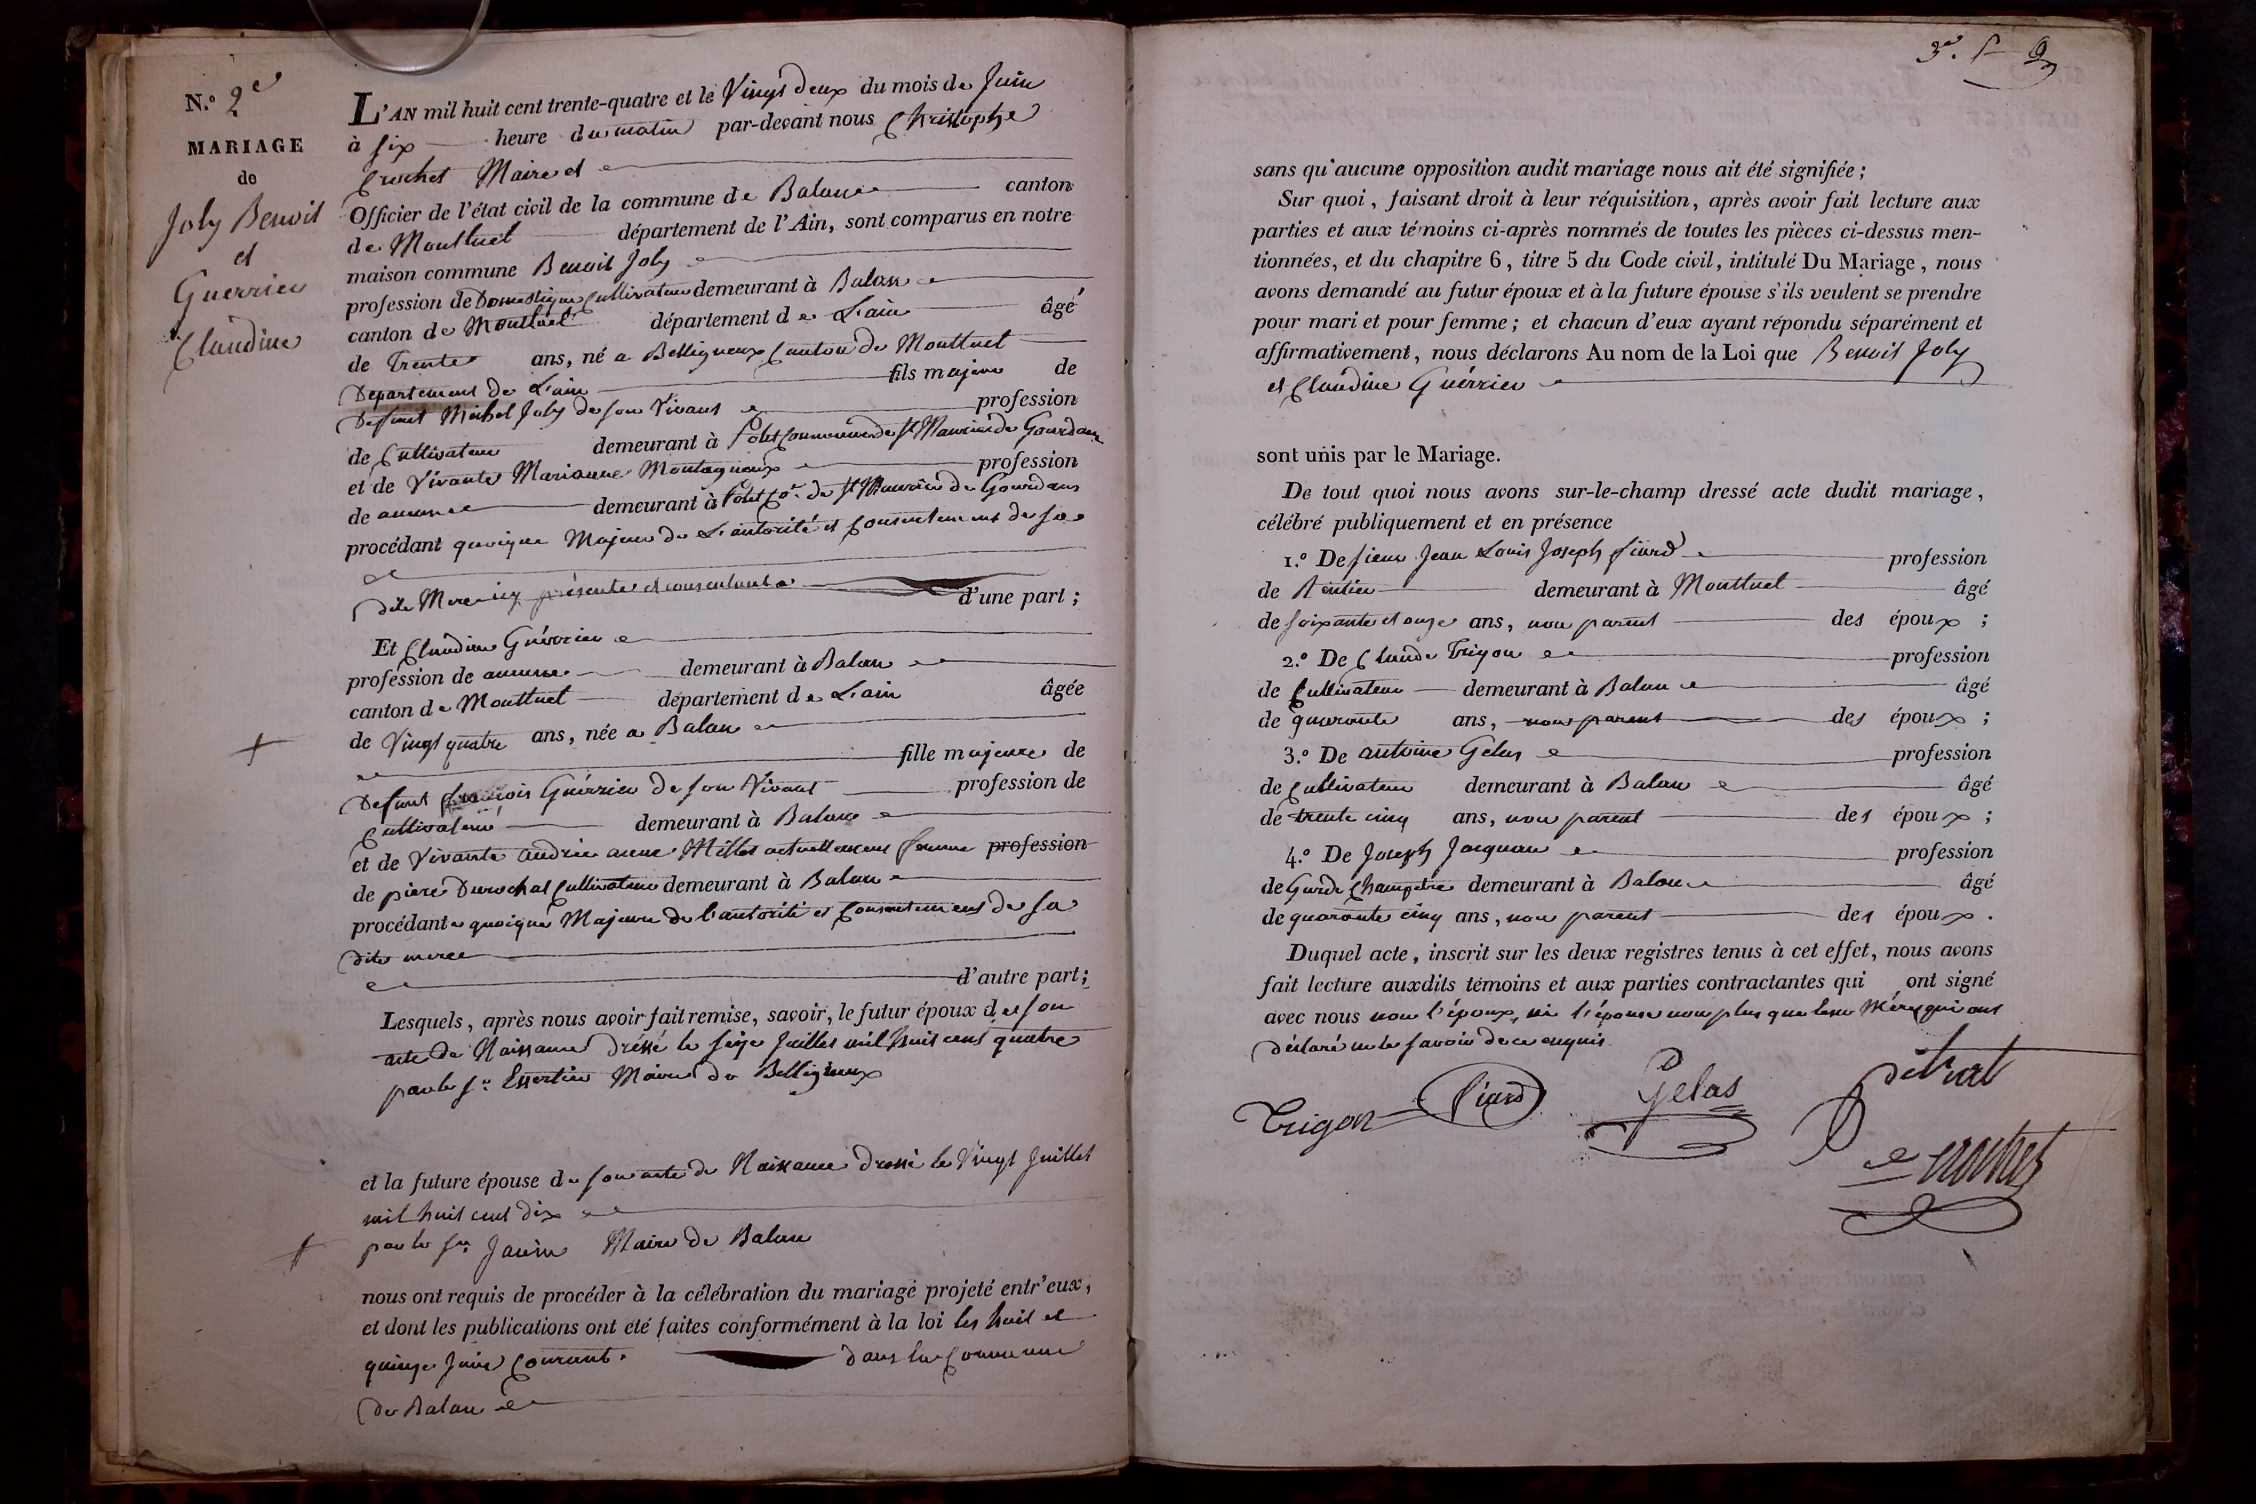 N.º 2e
MARIAGE
de
Joly Benoit
et
Guerrier
Claudine
L'AN mil huit cent trente-quatre et le Vingt deux du mois de Juin
à six heure du matin par-devant nous Christophe
Crochet Maire et
Officier de l'état civil de la commune de Balan canton
de Montluel département de l'Ain, sont comparus en notre
maison commune Benoit Joly
profession de Domestique Cultivateur demeurant à Balan
canton de Montluel département de L'ain âgé
de Trente ans, né a Belligneux Canton de Montluel
Département de L'ain fils majeur de
Deffunt Michel Joly de son Vivant profession
de Cultivateur demeurant à Polet Commune de St Maurice de Gourdans
et de Vivante Marianne Montagneux profession
de aucune demeurant à Polet Co. de St Maurice de Gourdans
procédant quoique Majeur de L'autorité et Consentement de sa
dite Mere icy présente et consentante d'une part ;
Et Claudine Guérrier
profession de aucune demeurant à Balan
canton de Montluel département de L'ain âgée
de Vingt quatre ans, née a Balan
fille majeure de
Defunt François Guérrier de son Vivant profession de
Cultivateur demeurant à Balan
et de Vivante andrée anne Millet actuellement femme profession
de piere Durochat Cultivateur demeurant à Balan
procédant e quoique Majeure de l'autorité et Consentement de sa
dite mere
d'autre part ;
Lesquels, après nous avoir fait remise, savoir, le futur époux de son
acte de Naissance dréssé le seize Juillet mil huit cent quatre
par le Sr. Essertier Maire de Belligneux
et la future épouse de son acte de Naissance dressé le Vingt Juillet
mil huit cent dix
par le Sr. Janin Maire de Balan
nous ont requis de procéder à la célébration du mariage projeté entr'eux,
et dont les publications ont été faites conformément à la loi les huit et
quinze Juin Courant. dans la Commune
de Balan
sans qu'aucune opposition audit mariage nous ait été signifiée ;
Sur quoi, faisant droit à leur réquisition, après avoir fait lecture aux
parties et aux témoins ci-après nommés de toutes les pièces ci-dessus men-
tionnées, et du chapitre 6, titre 5 du Code civil, intitulé Du Mariage, nous
avons demandé au futur époux et à la future épouse s'ils veulent se prendre
pour mari et pour femme ; et chacun d'eux ayant répondu séparément et
affirmativement, nous déclarons Au nom de la Loi que Benoit Joly
et Claudine Guérrier
sont unis par le Mariage.
De tout quoi nous avons sur-le-champ dressé acte dudit mariage,
célébré publiquement et en présence
1.º De sieur Jean Louis Joseph Piard profession
de Rentier demeurant à Montluel âgé
de soixante et onze ans, non parent des époux ;
2.º De Claude Trigon profession
de Cultivateur demeurant à Balan âgé
de quarante ans, non parent des époux ;
3.º De antoine Gelas profession
de Cultivateur demeurant à Balan âgé
de trente cinq ans, non parent des époux ;
4.º De Joseph Jacquan profession
de Garde Champetre demeurant à Balan âgé
de quarante cinq ans, non parent des époux.
Duquel acte, inscrit sur les deux registres tenus à cet effet, nous avons
fait lecture auxdits témoins et aux parties contractantes qui ont signé
avec nous non l'époux, ni l'épouse non plus que leur Mères qui ont
déclaré ne le savoir de ce enquis
Trigon Piard Gelas
Crochet